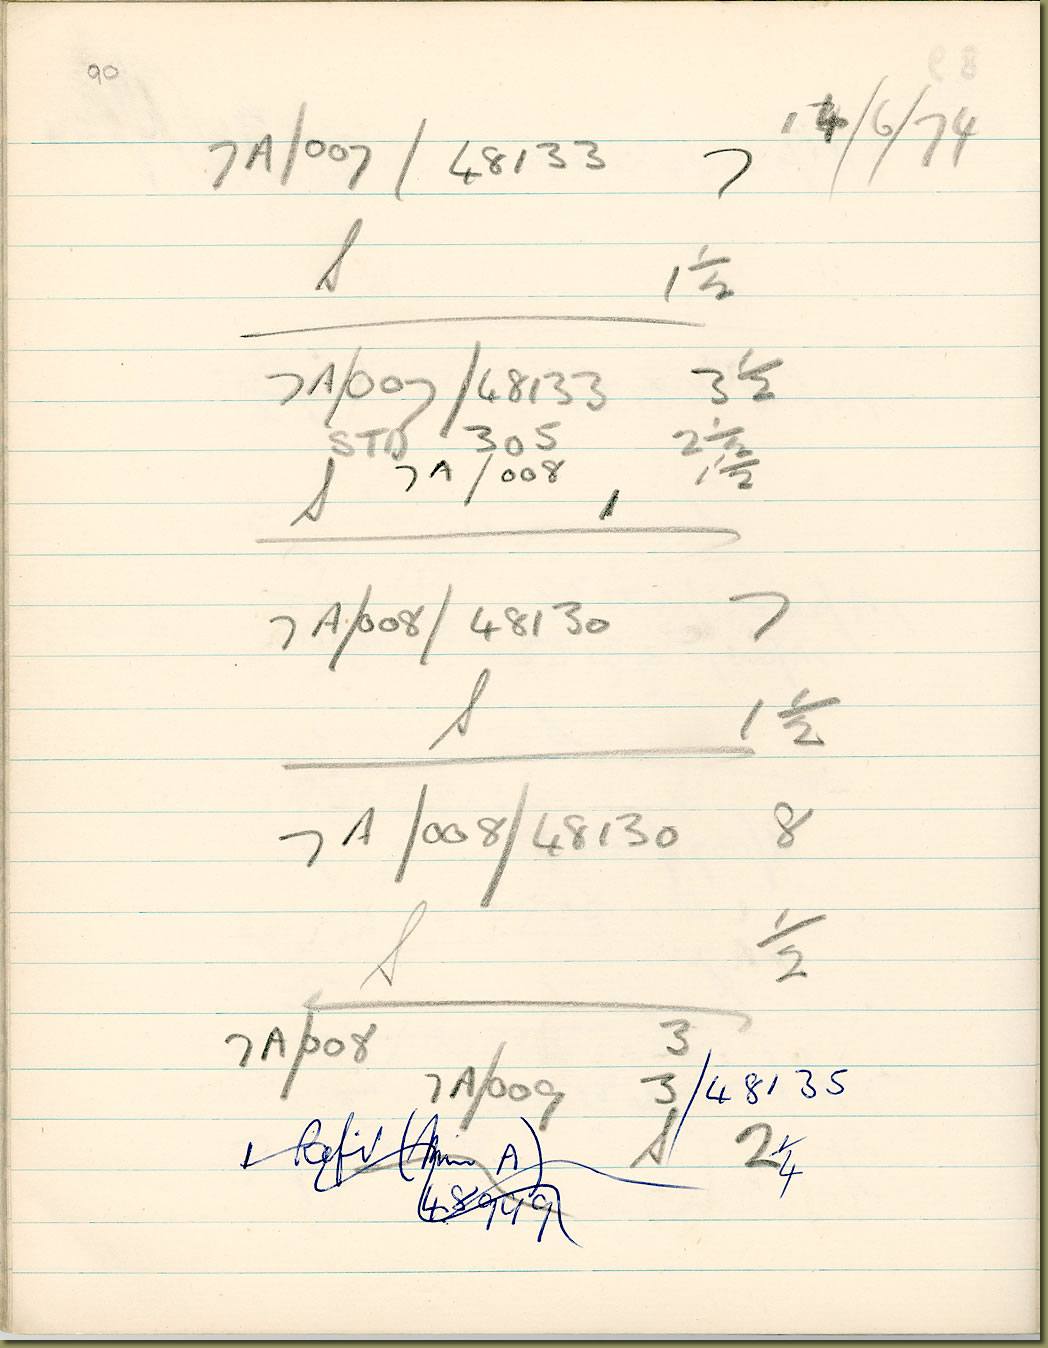 90
14/6/74
7A/007/48133 7
S 1 1/2
7A/007/48133 3 1/2
STD 305 2 1/2
S 7A/008 1 1/2
1
7A/008/48130 7
S 1 1/2
7A/008/48130 8
S 1/2
7A/008 3
7A/009 3/48135
1 Refil ( A) S 2 1/4
48949